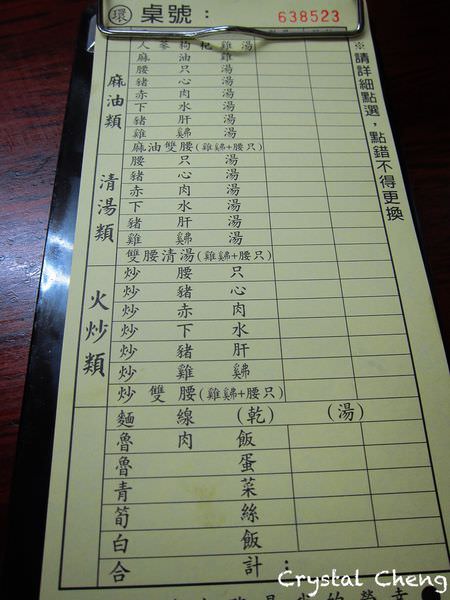 環 桌號： 638523
人蔘枸杞雞湯
麻油雞
腰只湯
豬心湯
赤肉湯
下水湯
豬肝湯
雞䏲湯
麻油雙腰(雞䏲+腰只)
麻油類
腰只湯
豬心湯
赤肉湯
下水湯
豬肝湯
雞䏲湯
雙腰清湯(雞䏲+腰只)
清湯類
炒腰只
炒豬心
炒赤肉
炒下水
炒豬肝
炒雞䏲
炒雙腰(雞䏲+腰只)
火炒類
麵線(乾) (湯)
魯肉飯
魯蛋
青菜
筍絲
白飯
合計：
※請詳細點選，點錯不得更換
Crystal Cheng